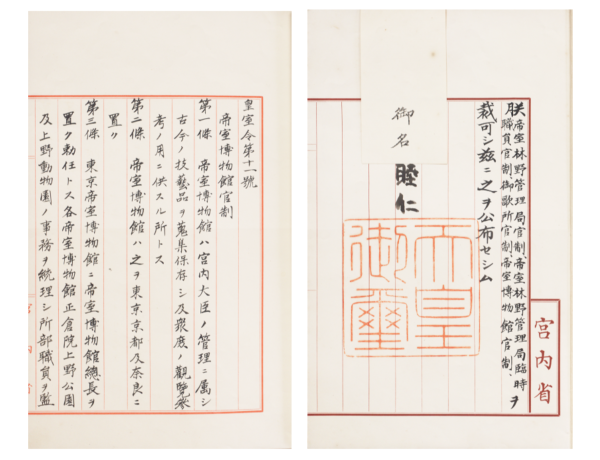 朕帝室林野管理局官制、帝室林野管理局臨時
職員官制、御歌所官制、帝室博物館官制、ヲ
裁可シ茲ニ之ヲ公布セシム
御名
睦仁
天皇
御璽
宮内省
皇室令第十一號
帝室博物館官制
第一條 帝室博物館ハ宮内大臣ノ管理ニ属シ
古今ノ技藝品ヲ蒐集保存シ及衆庶ノ觀覧參
考ノ用ニ供スル所トス
第二條 帝室博物館ハ之ヲ東京京都及奈良ニ
置ク
第三條 東京帝室博物館ニ帝室博物館總長ヲ
置ク勅任トス各帝室博物館正倉院上野公園
及上野動物園ノ事務ヲ統理シ所部職員ヲ監